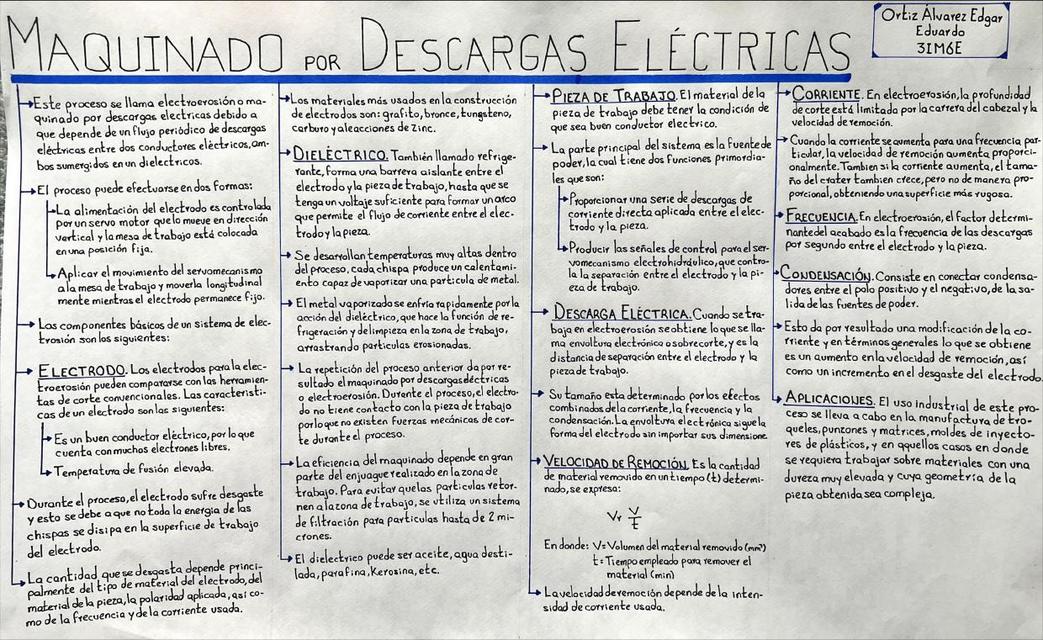 MAQUINADO POR DESCARGAS ELÉCTRICAS
Ortiz Álvarez Edgar
Eduardo
3IM6E
Este proceso se llama electroerosión o ma-
quinado por descargas electricas debido a
que depende de un flujo periódico de descargas
eléctricas entre dos conductores eléctricos, am-
bos sumergidos en un dielectricos.
El proceso puede efectuarse en dos formas:
La alimentación del electrodo es controlada
por un servo motor que lo mueve en dirección
vertical y la mesa de trabajo está colocada
en una posición fija.
Aplicar el movimiento del servomecanismo
a la mesa de trabajo y moverla longitudinal
mente mientras el electrodo permanece fijo.
Los componentes básicos de un sistema de elec-
trosión son los siguientes:
ELECTRODO. Los electrodos para la elec-
troerosión pueden compararse con las herramien-
tas de corte convencionales. Las caracteristi-
cas de un electrodo son las siguientes:
Es un buen conductor eléctrico, por lo que
cuenta con muchos electrones libres.
Temperatura de fusión elevada.
Durante el proceso, el electrodo sufre desgaste
y esto se debe a que no toda la energía de las
chispas se disipa en la superficie de trabajo
del electrodo.
La cantidad que se desgasta depende princi-
palmente del tipo de material del electrodo, del
material de la pieza, la polaridad aplicada, así co-
mo de la frecuencia y de la corriente usada.
Los materiales más usados en la construcción
de electrodos son: grafito, bronce, tungsteno,
carburo y aleacciones de zinc.
DIELÉCTRICO. También llamado refrige-
rante, forma una barrera aislante entre el
electrodo y la pieza de trabajo, hasta que se
tenga un voltaje suficiente para formar un arco
que permite el flujo de corriente entre el elec-
trodo y la pieza.
Se desarrollan temperaturas muy altas dentro
del proceso, cada chispa produce un calentami-
ento capaz de vaporizar una partícula de metal.
El metal vaporizado se enfría rapidamente por la
acción del dieléctrico, que hace la función de re-
frigeración y de limpieza en la zona de trabajo,
arrastrando particulas erosionadas.
La repetición del proceso anterior da por re-
sultado el maquinado por descargas eléctricas
o electroerosión. Durante el proceso, el electro-
do no tiene contacto con la pieza de trabajo
por lo que no existen fuerzas mecánicas de cor-
te durante el proceso.
La eficiencia del maquinado depende en gran
parte del enjuague realizado en la zona de
trabajo. Para evitar que las particulas retor-
nen a la zona de trabajo, se utiliza un sistema
de filtración para particulas hasta de 2 mi-
crones.
El dielectrico puede ser aceite, agua desti-
lada, parafina, Kerosina, etc.
PIEZA DE TRABAJO. El material de la
pieza de trabajo debe tener la condición de
que sea buen conductor electrico.
La parte principal del sistema es la fuente de
poder, la cual tiene dos funciones primordia-
les que son:
Proporcionar una serie de descargas de
corriente directa aplicada entre el elec-
trodo y la pieza.
Producir las señales de control para el ser-
vomecanismo electrohidráulico, que contro-
la la separación entre el electrodo y la pi-
eza de trabajo.
DESCARGA ELÉCTRICA. Cuando se tra-
baja en electroerosión se obtiene lo que se lla-
ma envoltura electrónica o sobrecorte, y es la
distancia de separación entre el electrodo y la
pieza de trabajo.
Su tamaño esta determinado por los efectos
combinados de la corriente, la frecuencia y la
condensación. La envoltura electrónica sigue la
forma del electrodo sin importar sus dimensione
VELOCIDAD DE REMOCIÓN. Es la cantidad
de material removido en un tiempo (t) determi-
nado, se expresa:
Vr V/t
En donde: V= Volumen del material removido (mm³)
t= Tiempo empleado para remover el
material (min)
La velocidad de remoción depende de la inten-
sidad de corriente usada.
CORRIENTE. En electroerosión, la profundidad
de corte está limitado por la carrera del cabezal y la
velocidad de remoción.
Cuando la corriente se aumenta para una frecuencia par-
ticular, la velocidad de remoción aumenta proporci-
onalmente. Tambien si la corriente aumenta, el tama-
ño del crater tambien crece, pero no de manera pro-
porcional, obteniendo una superficie más rugosa.
FRECUENCIA. En electroerosión, el factor determi-
nante del acabado es la frecuencia de las descargas
por segundo entre el electrodo y la pieza.
CONDENSACIÓN. Consiste en conectar condensa-
dores entre el polo positivo y el negativo, de la sa-
lida de las fuentes de poder.
Esto da por resultado una modificación de la co-
rriente y en términos generales lo que se obtiene
es un aumento en la velocidad de remoción, así
como un incremento en el desgaste del electrodo.
APLICACIONES. El uso industrial de este pro-
ceso se lleva a cabo en la manufactura de tro-
queles, punzones y matrices, moldes de inyecto-
res de plásticos, y en aquellos casos en donde
se requiera trabajar sobre materiales con una
dureza muy elevada y cuya geometría de la
pieza obtenida sea compleja.